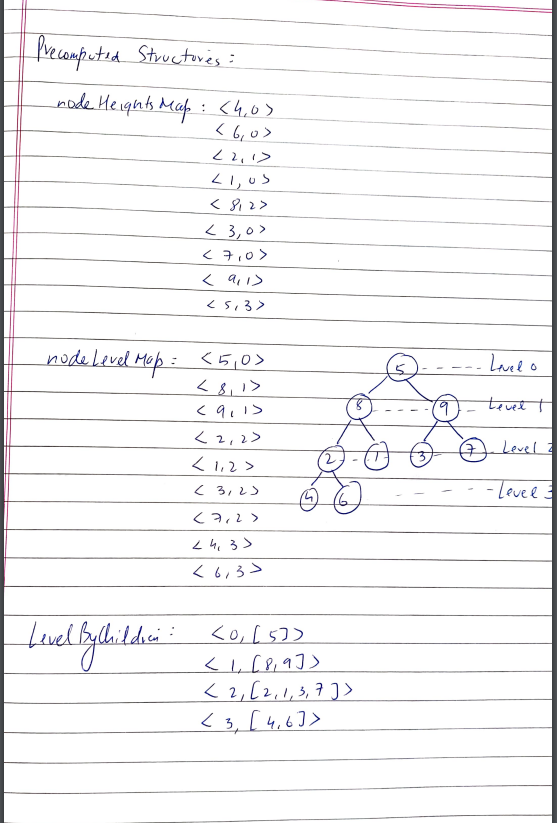 Precomputed Structures :
nodeHeightsMap : <4,0>
<6,0>
<2,1>
<1,0>
<8,2>
<3,0>
<7,0>
<9,1>
<5,3>
nodeLevelMap : <5,0>
<8,1>
<9,1>
<2,2>
<1,2>
<3,2>
<7,2>
<4,3>
<6,3>
5 Level 0
8 9 Level 1
2 1 3 7 Level 2
4 6 Level 3
LevelByChildren : <0,[5]>
<1,[8,9]>
<2,[2,1,3,7]>
<3,[4,6]>